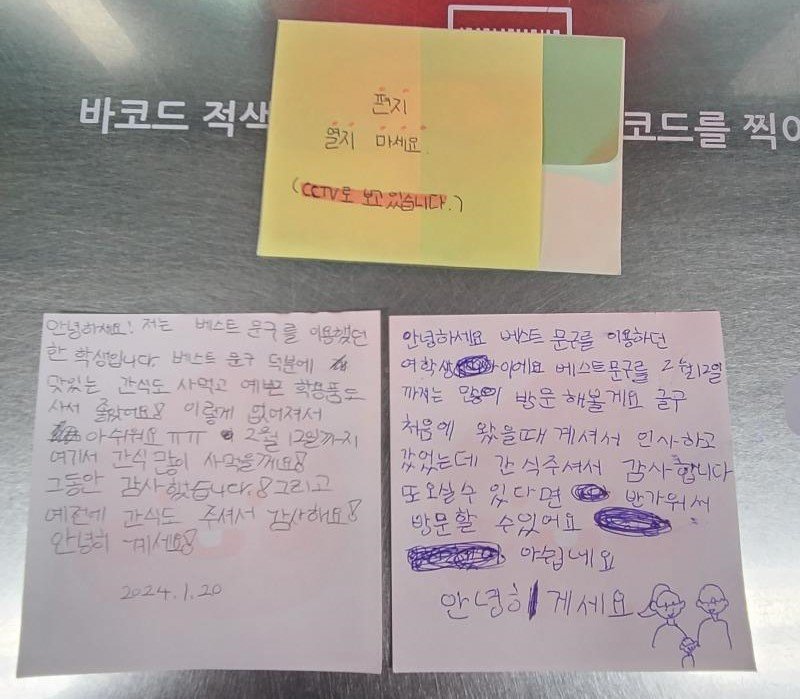 바코드 적색
코드를 찍어
편지
열지 마세요.
(CCTV로 보고있습니다.)
안녕하세요! 저는 베스트 문구를 이용했던
한 학생입니다 베스트 문구 덕분에
맛있는 간식도 사먹고 예쁜 학용품도
사서 좋았어요! 이렇게 없어져서
아쉬워요ㅠㅠ 2월 12일까지
여기서 간식 많이 사먹을께요!
그동안 감사했습니다! 그리고
예전에 간식도 주셔서 감사해요!
안녕히 계세요!
2024.1.20
안녕하세요 베스트 문구를 이용하던
여학생 이에요 베스트문구를 2월12일
까지는 많이 방문 해볼게요 글구
처음에 왔을때 계셔서 인사하고
갔었는데 간식주셔서 감사합니다
또오실수 있다면 반가워서
방문할 수있어요
아쉽네요
안녕히 계세요